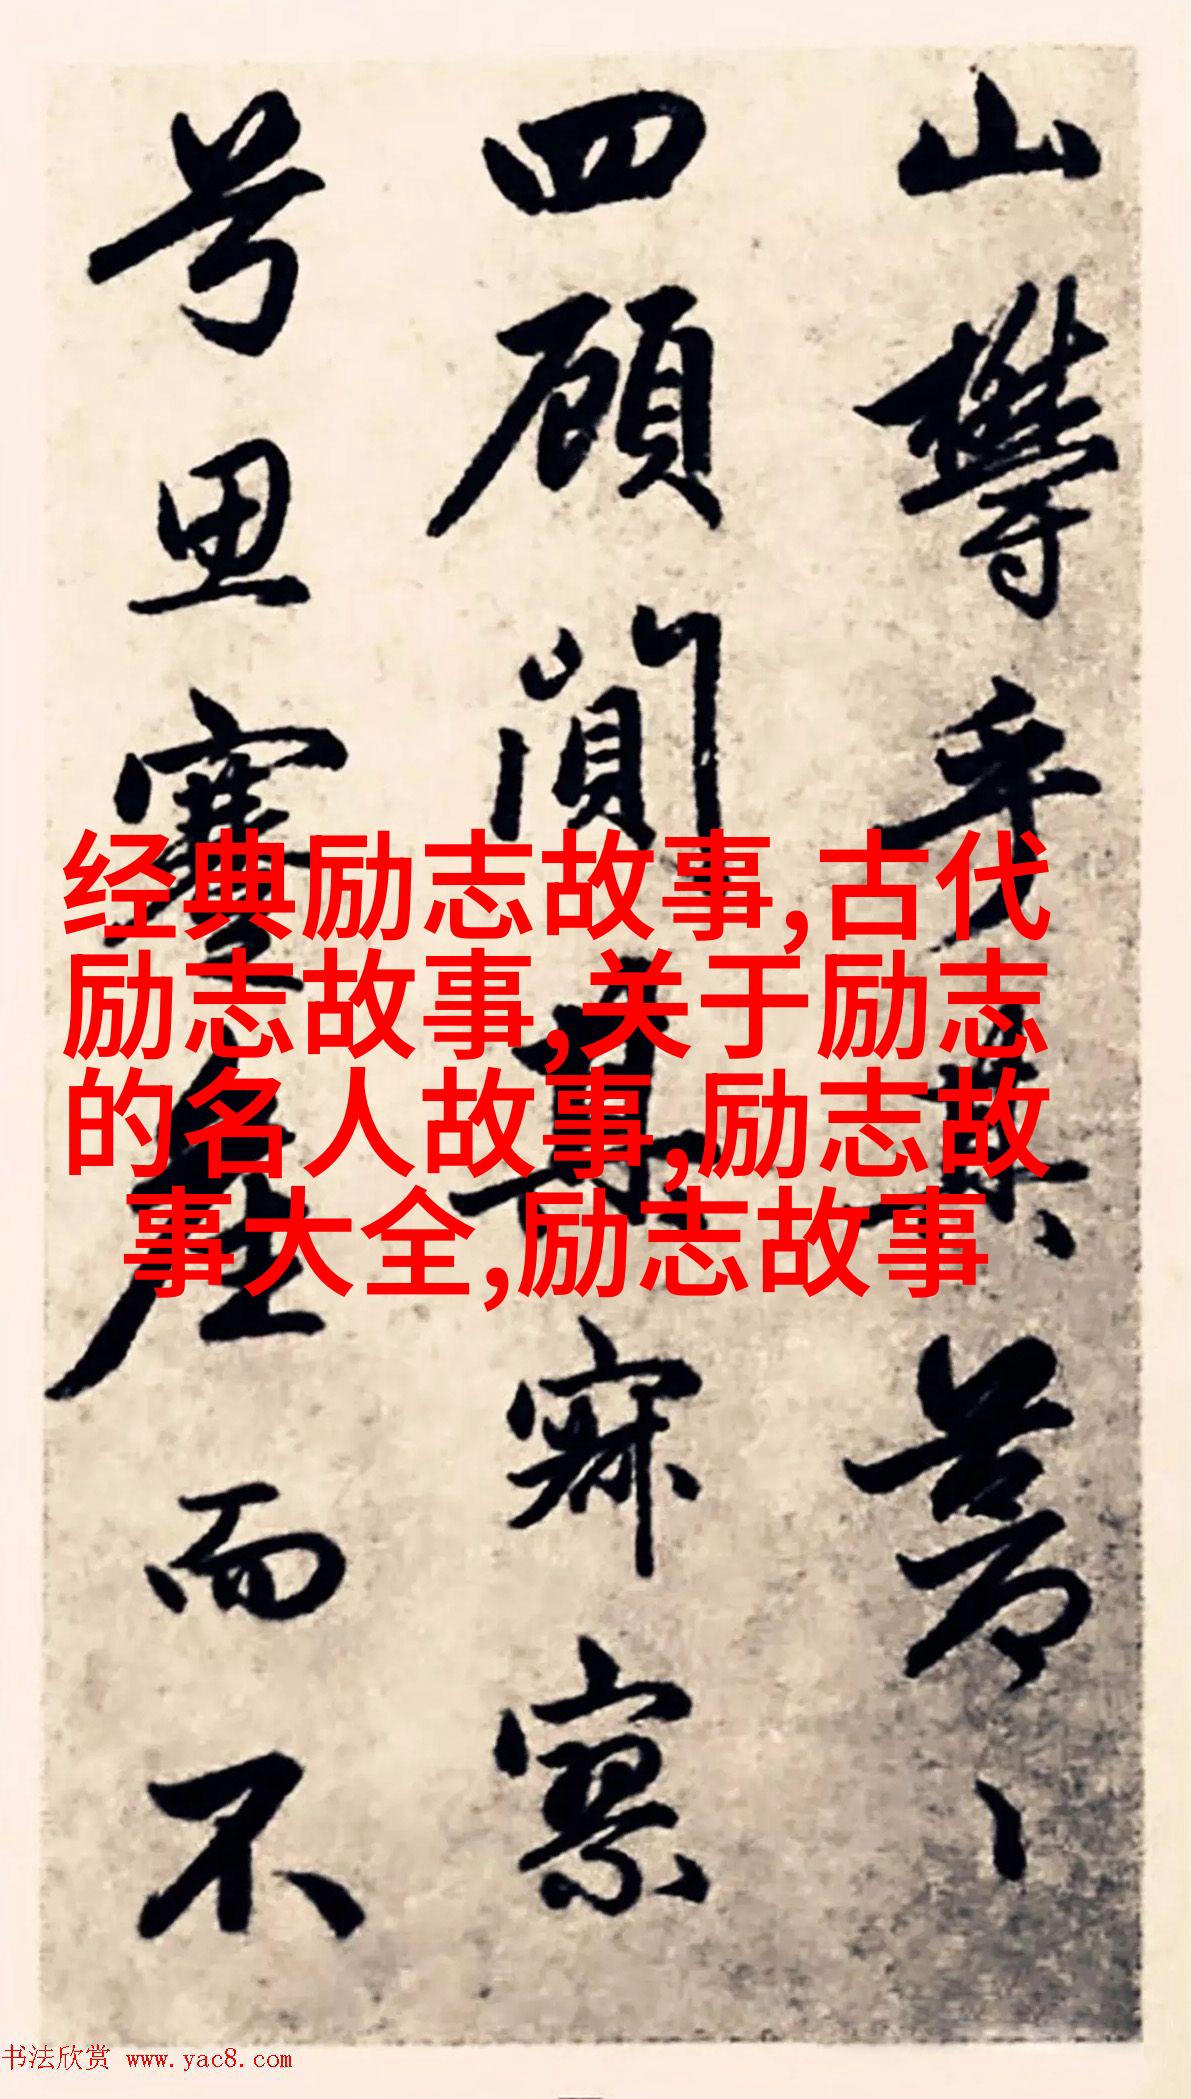 山欝乎其蒼〻
四顧闃其寂寥
兮思蹇產而不
经典励志故事,古代
励志故事,关于励志
的名人故事,励志故
事大全,励志故事
书法欣赏 www.yac8.com